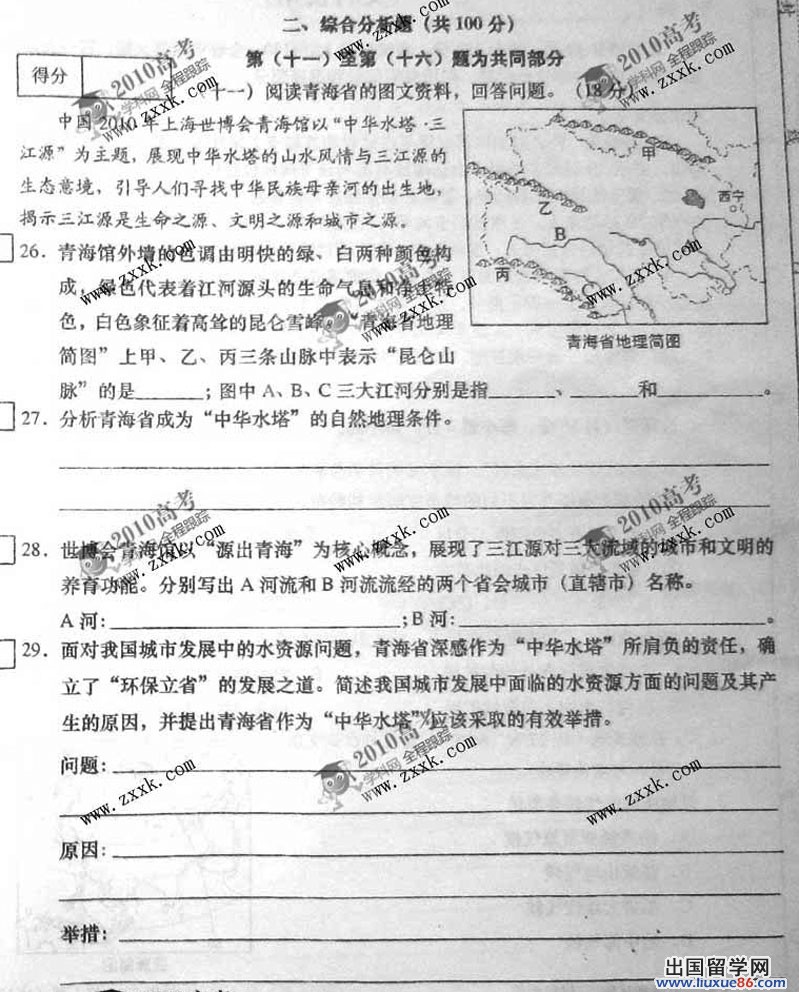 二、综合分析题（共 100 分）
第（十一）至第（十六）题为共同部分
得分
（十一）阅读青海省的图文资料，回答问题。（18 分）
中国 2010 年上海世博会青海馆以“中华水塔·三
江源”为主题，展现中华水塔的山水风情与三江源的
生态意境，引导人们寻找中华民族母亲河的出生地，
揭示三江源是生命之源、文明之源和城市之源。
甲
西宁
乙
B
丙
C
青海省地理简图
26．青海馆外墙的色调由明快的绿、白两种颜色构
成，绿色代表着江河源头的生命气息和净土特
色，白色象征着高耸的昆仑雪峰。“青海省地理
简图”上甲、乙、丙三条山脉中表示“昆仑山
脉”的是______；图中 A、B、C 三大江河分别是指______、______和______。
27．分析青海省成为“中华水塔”的自然地理条件。
28．世博会青海馆以“源出青海”为核心概念，展现了三江源对三大流域的城市和文明的
养育功能。分别写出 A 河流和 B 河流流经的两个省会城市（直辖市）名称。
A 河：______；B 河：______。
29．面对我国城市发展中的水资源问题，青海省深感作为“中华水塔”所肩负的责任，确
立了“环保立省”的发展之道。简述我国城市发展中面临的水资源方面的问题及其产
生的原因，并提出青海省作为“中华水塔”应该采取的有效举措。
问题：
原因：
举措：
2010高考
学科网 全程跟踪
www.zxxk.com
2010高考
学科网 全程跟踪
www.zxxk.com
2010高考
www.zxxk.com
2010高考
学科网 全程跟踪
www.zxxk.com
2010高考
学科网 全程跟踪
www.zxxk.com
2010高考
学科网 全程跟踪
www.zxxk.com
www.zxxk.com
www.zxxk.com
www.zxxk.com
www.zxxk.com
www.zxxk.com
出国留学网
www.liuxue86.com